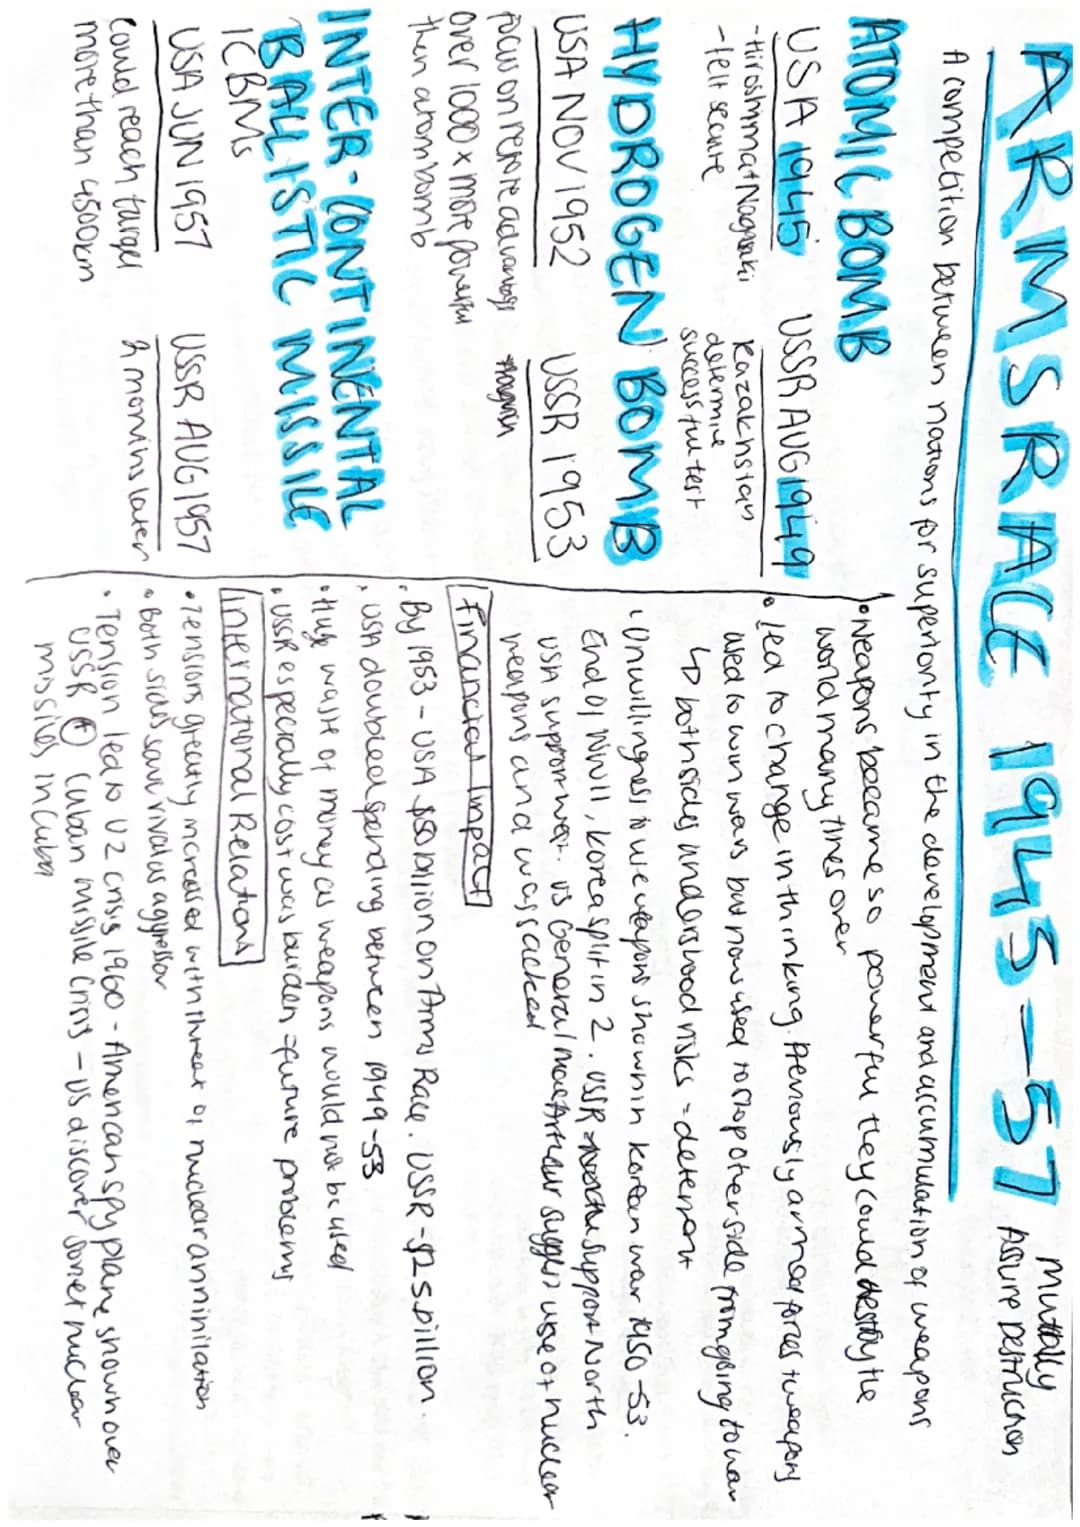 ARMS RACE 1945-57
Mutally
Assure Destruction
A competition between nations for superiority in the development and accumulation of weapons
ATOMIC BOMB
USA 1945
-Hiroshima + Nagasaki
-felt secure
USSR AUG 1949
Kazakhstan
determine
successful test
HYDROGEN BOMB
USA NOV 1952
focus on restore advantage
over 1000 x more powerful
then atom bomb
USSR 1953
INTER-CONTINENTAL
BALLISTIC MISSILE
ICBMs
USA JUN 1957
could reach target
more than 4500km
USSR AUG 1957
2 months later
• Weapons became so powerful they could destroy the
world many times over
• Led to change in thinking. Previously armed forces + weapons
used to win wars but now used to stop other side from going to war
↳ both sides understood risks = deterrent
• Unwillingness to use weapons shown in Korean war 1950-53.
End of WWII, Korea split in 2. USSR support North
USA support west. US General MacArthur suggest use of nuclear
weapons and was sacked
Financial Impact
• By 1953 - USA $50 billion on Arms Race. USSR - $25 billion
• USA doubled spending between 1949-53
• Huge waste of money as weapons would not be used
• USSR especially cost was burden = future problems
International Relations
• Tensions greatly increased with threat of nuclear annihilation
• Both sides saw rival as aggressor
• Tension led to U2 crisis 1960 - American spy plane shown over
USSR + Cuban missile crisis - US discover soviet nuclear
missiles in Cuba